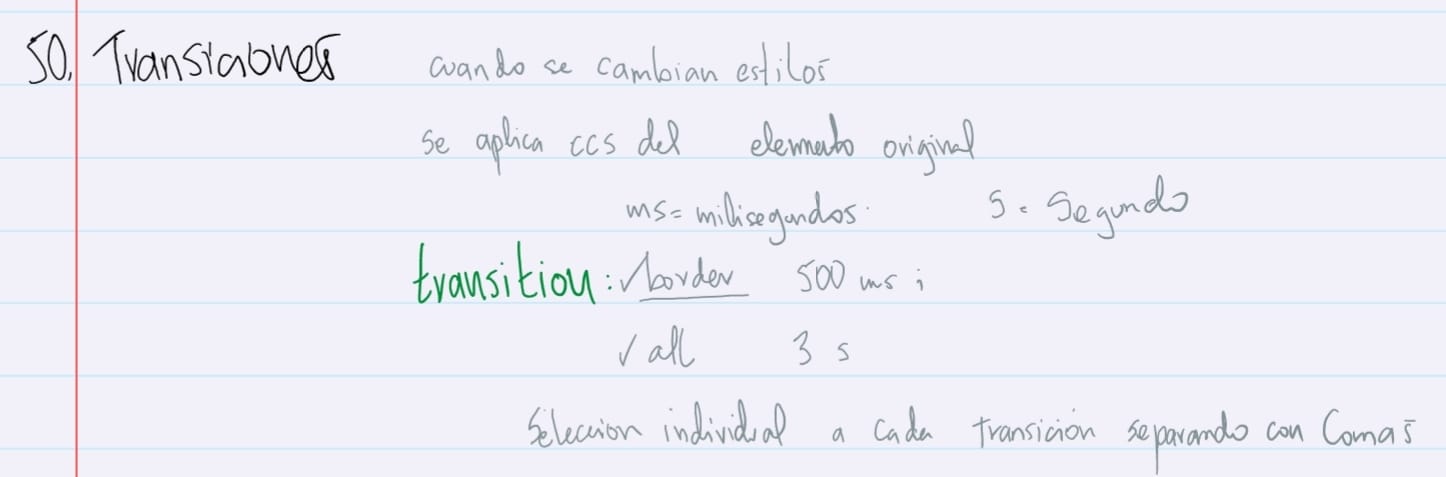 50. Transiciones cuando se cambian estilos
se aplica ccs del elemento original
ms = milisegundos. S = Segundo
transition: ✓border 500 ms ;
✓ all 3 s
Seleccion individual a cada transición separando con Comas